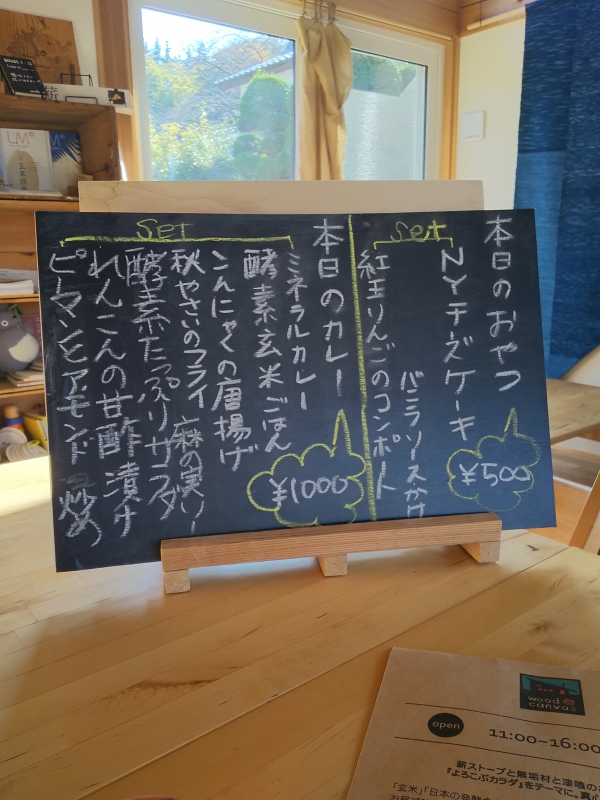 本日のおやつ
NYチーズケーキ
バニラソースかけ
紅玉りんごのコンポート
Set
¥500
本日のカレー
ミネラルカレー
酵素玄米ごはん
こんにゃくの唐揚げ
秋やさいのフライ 麻の実ソー
酵素たっぷりサラダ
れんこんの甘酢漬け
ピーマンとアーモンドの炒め
Set
¥1000
wood
canvas
open
11:00-16:00
薪ストーブと無垢材と漆喰の
『よろこぶカラダ』をテーマに。真心
「玄米」「日本の発酵